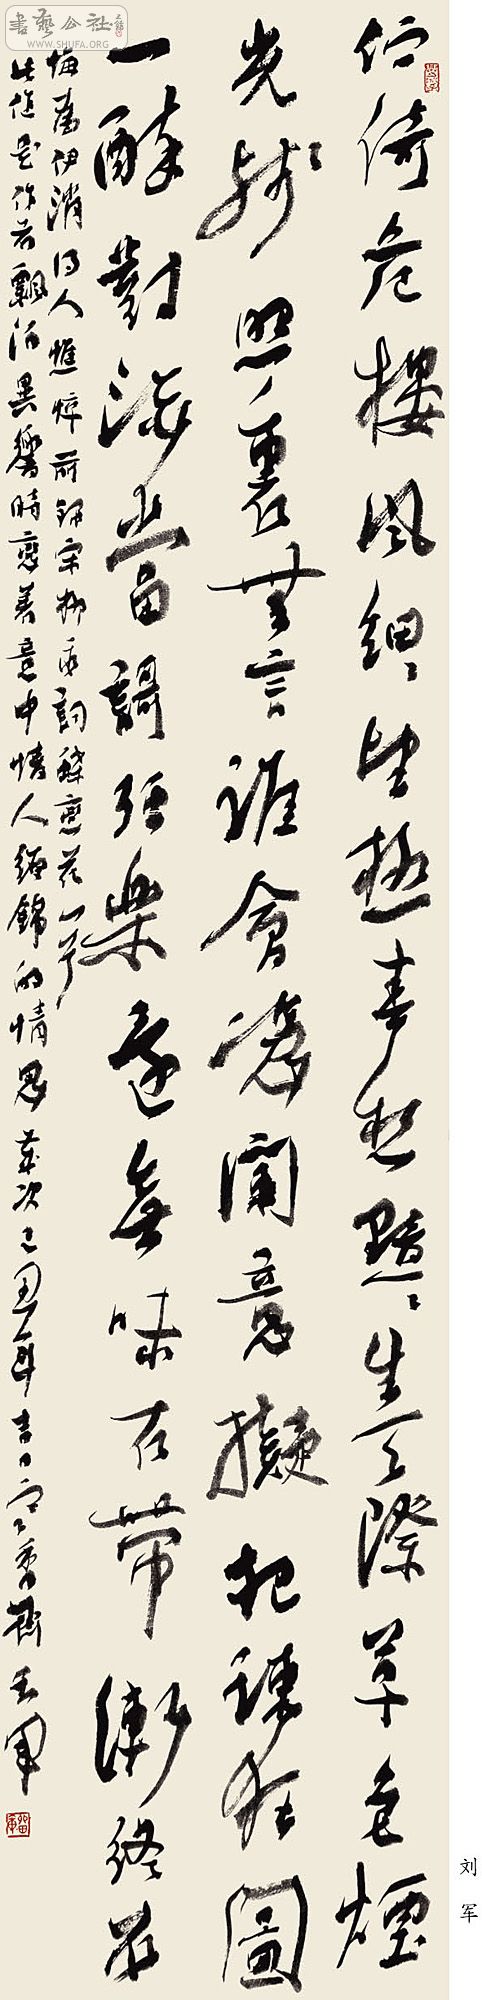 書藝公社
WWW.SHUFA.ORG
佇倚危樓風細々望極春愁黯々生天際草色煙
光殘照裏無言誰會憑闌意擬把疎狂圖
一醉對酒當謌強樂還無味衣帶漸終不
悔為伊消得人憔悴前錄宋柳永詞蝶戀花一首
此作是作者飄泊異鄉時戀着意中情人纏綿的情思歲次己丑年吉日香齋軍
刘军